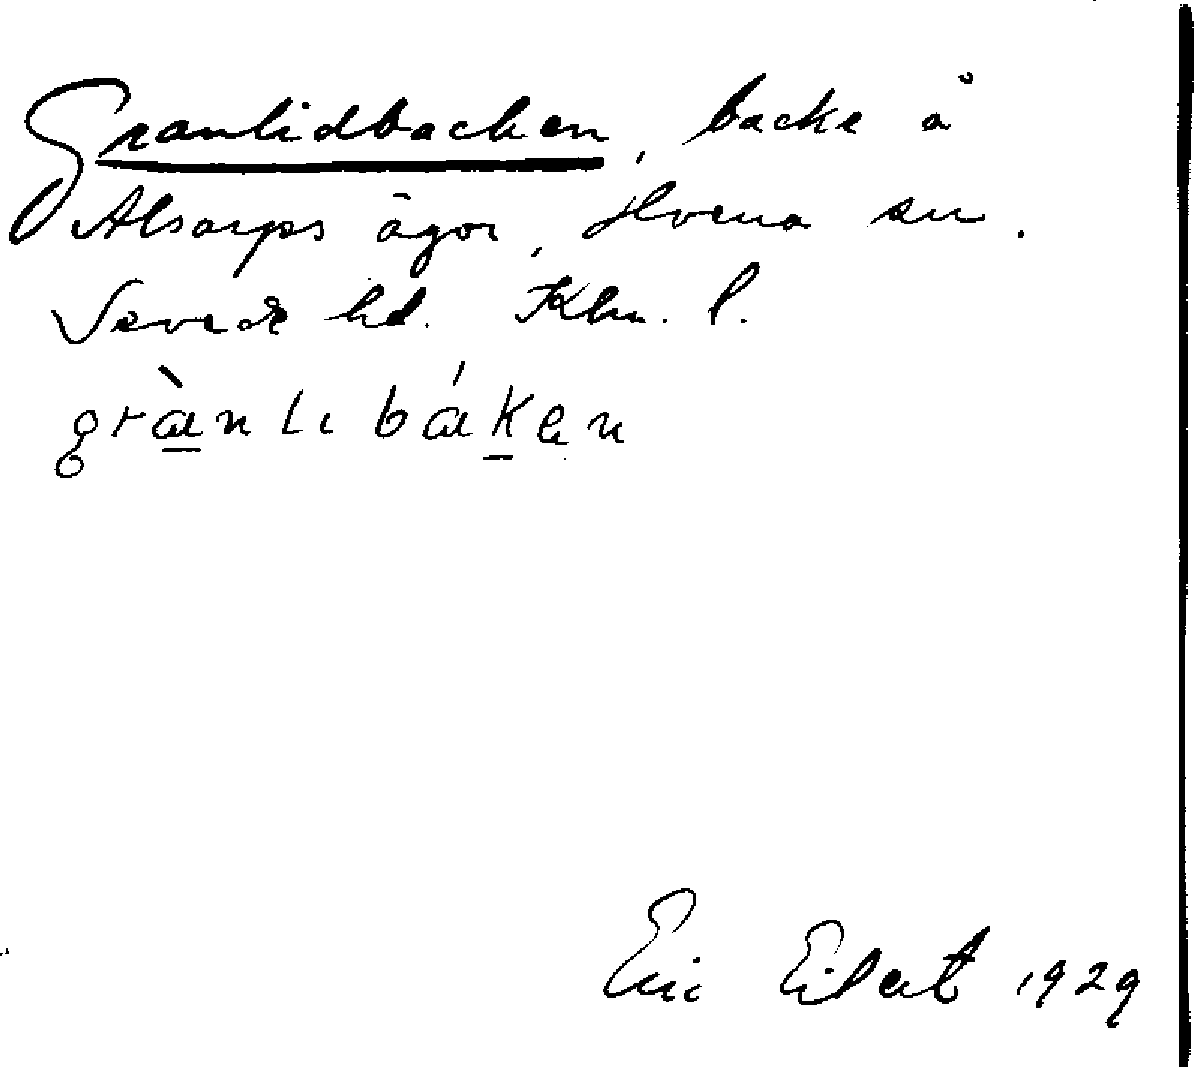 Granlidbacken, backe å
Alsarps ägor, Hvena sn.
Sevede hd. Klm. l.
grànlibáken
Eric Eilert 1929